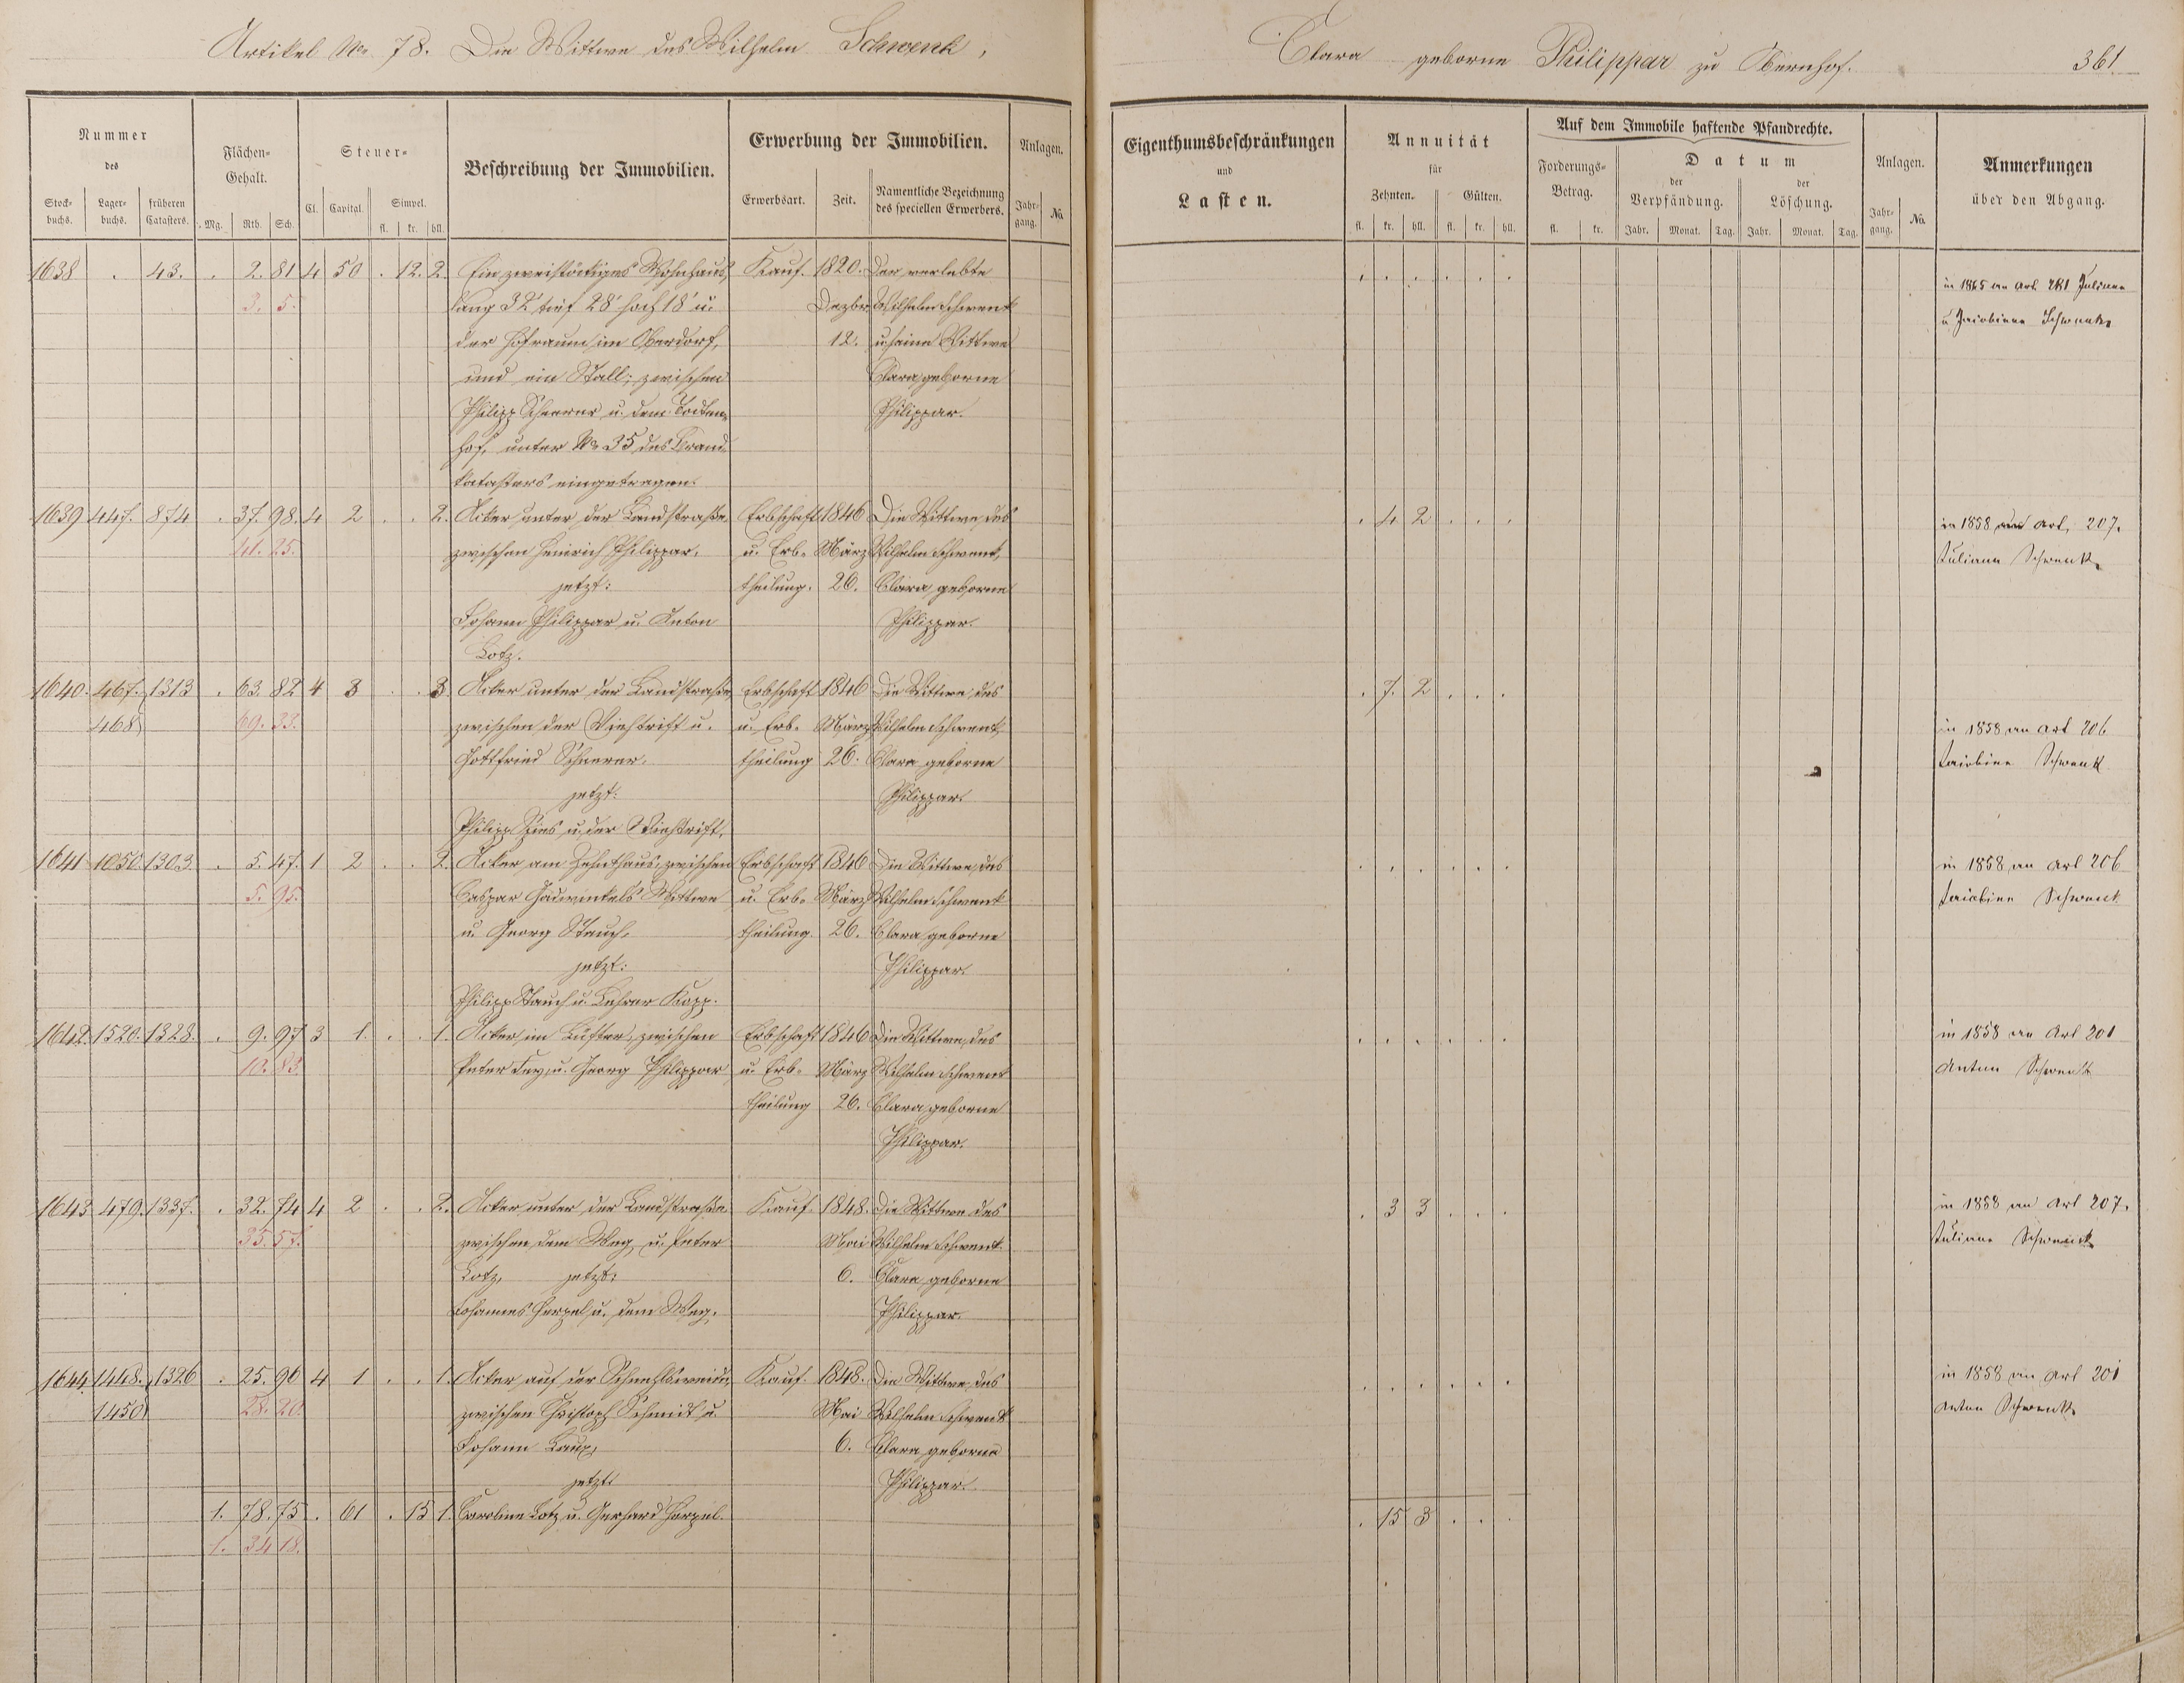 Artikel No. 78. Die Wittwe des Wilhelm Schwenk,
Clara geborne Philippar zu Obernhof.
361
Nummer
des
Stock-
buchs.
Lager-
buchs.
früheren
Catasters.
Flächen-
Gehalt.
Mg. Rth. Sch.
Steuer-
Cl. Capital. Simpel.
fl. kr. hll.
Beschreibung der Immobilien.
Erwerbung der Immobilien.
Erwerbsart. Zeit.
Namentliche Bezeichnung
des speciellen Erwerbers.
Anlagen.
Jahr-
gang.
No.
1638 . 43. . 2. 81 4 50 . 12. 2. Ein zweistöckiges Wohnhaus, Kauf. 1820. Der verlebte
3. 5. lang 32' tief 28' hoch 18' u. Dezbr Wilhelm Schwenk
der Hofraum im Oberdorf, 12. u. seine Wittwe
und ein Stall; zwischen Clara geborne
Philipp Scheerer u. dem Todten- Philippar.
hof, unter No 35 des Brand-
katasters eingetragen.
1639 447. 874 . 37. 98. 4 2 . . 2. Acker unter der Landstraße Erbschaft 1846 Die Wittwe des
41. 25. zwischen Heinrich Philippar, u. Erb- März Wilhelm Schwenk,
jetzt: theilung. 26. Clara geborne
Johann Philippar u. Anton Philippar.
Lotz.
1640. 467. 1313 . 63. 82 4 3 . . 3. Acker unter der Landstraße, Erbschaft 1846 Die Wittwe des
468 69. 33. zwischen der Viehtrift u. u. Erb- März Wilhelm Schwenk,
Gottfried Scheerer, theilung 26. Clara geborne
jetzt: Philippar.
Philipp Spies u. der Viehtrift.
1641 1050. 1303. . 5. 47. 1 2 . . 2. Acker am Zehnthaus, zwischen Erbschaft 1846 Die Wittwe des
5. 95. Caspar Wittwe u. Erb- März Wilhelm Schwenk
u. Georg Stauch, theilung. 26. Clara geborne
jetzt: Philippar.
Philipp Stauch u. Lehrer Kopp.
1642. 1520. 1328. . 9. 97 3 1. . . 1. Acker im zwischen Erbschaft 1846 Die Wittwe des
10. 83. Peter u. Georg Philippar u. Erb- März Wilhelm Schwenk
theilung 26. Clara geborne
Philippar.
1643 479. 1337. . 32. 74 4 2 . . 2. Acker unter der Landstraße Kauf. 1848. Die Wittwe des
35. 57. zwischen dem Weg u. Peter Mai Wilhelm Schwenk.
Lotz, jetzt: 6. Clara geborne
Johannes Herpel u. dem Weg. Philippar.
1644. 1448. 1326 . 25. 96 4 1 . . 1. Acker auf der Kauf. 1848. Die Wittwe des
1450 28. 20. zwischen Christoph Schmidt u. Mai Wilhelm Schwenk
Johann 6. Clara geborne
jetzt: Philippar.
1. 78. 75 . 61 . 15 1. Caroline Lotz u. Gerhard Herpel.
1. 34 18.
Eigenthumsbeschränkungen
und
Lasten.
Annuität
für
Zehnten. Gülten.
fl. kr. hll. fl. kr. hll.
Auf dem Immobile haftende Pfandrechte.
Forderungs-
Betrag.
fl. kr.
Datum
der
Verpfändung.
der
Löschung.
Jahr. Monat. Tag. Jahr. Monat. Tag.
Anlagen.
Jahr-
gang.
No.
Anmerkungen
über den Abgang.
. . . . . . in 1865 an Art. 281 Juliane
u Jacobine Schwenk
. 4 2 . . . in 1858 an Art. 207.
Juliane Schwenk
. 7. 2 . . .
in 1858 an Art 206
Jacobine Schwenk
. . . . . . in 1858 an Art 206
Jacobine Schwenk
. . . . . . in 1858 an Art 201
Anton Schwenk
. 3 3 . . . in 1858 an Art 207.
Juliane Schwenk
. . . . . . in 1858 an Art 201
Anton Schwenk
. 15 3 . . .